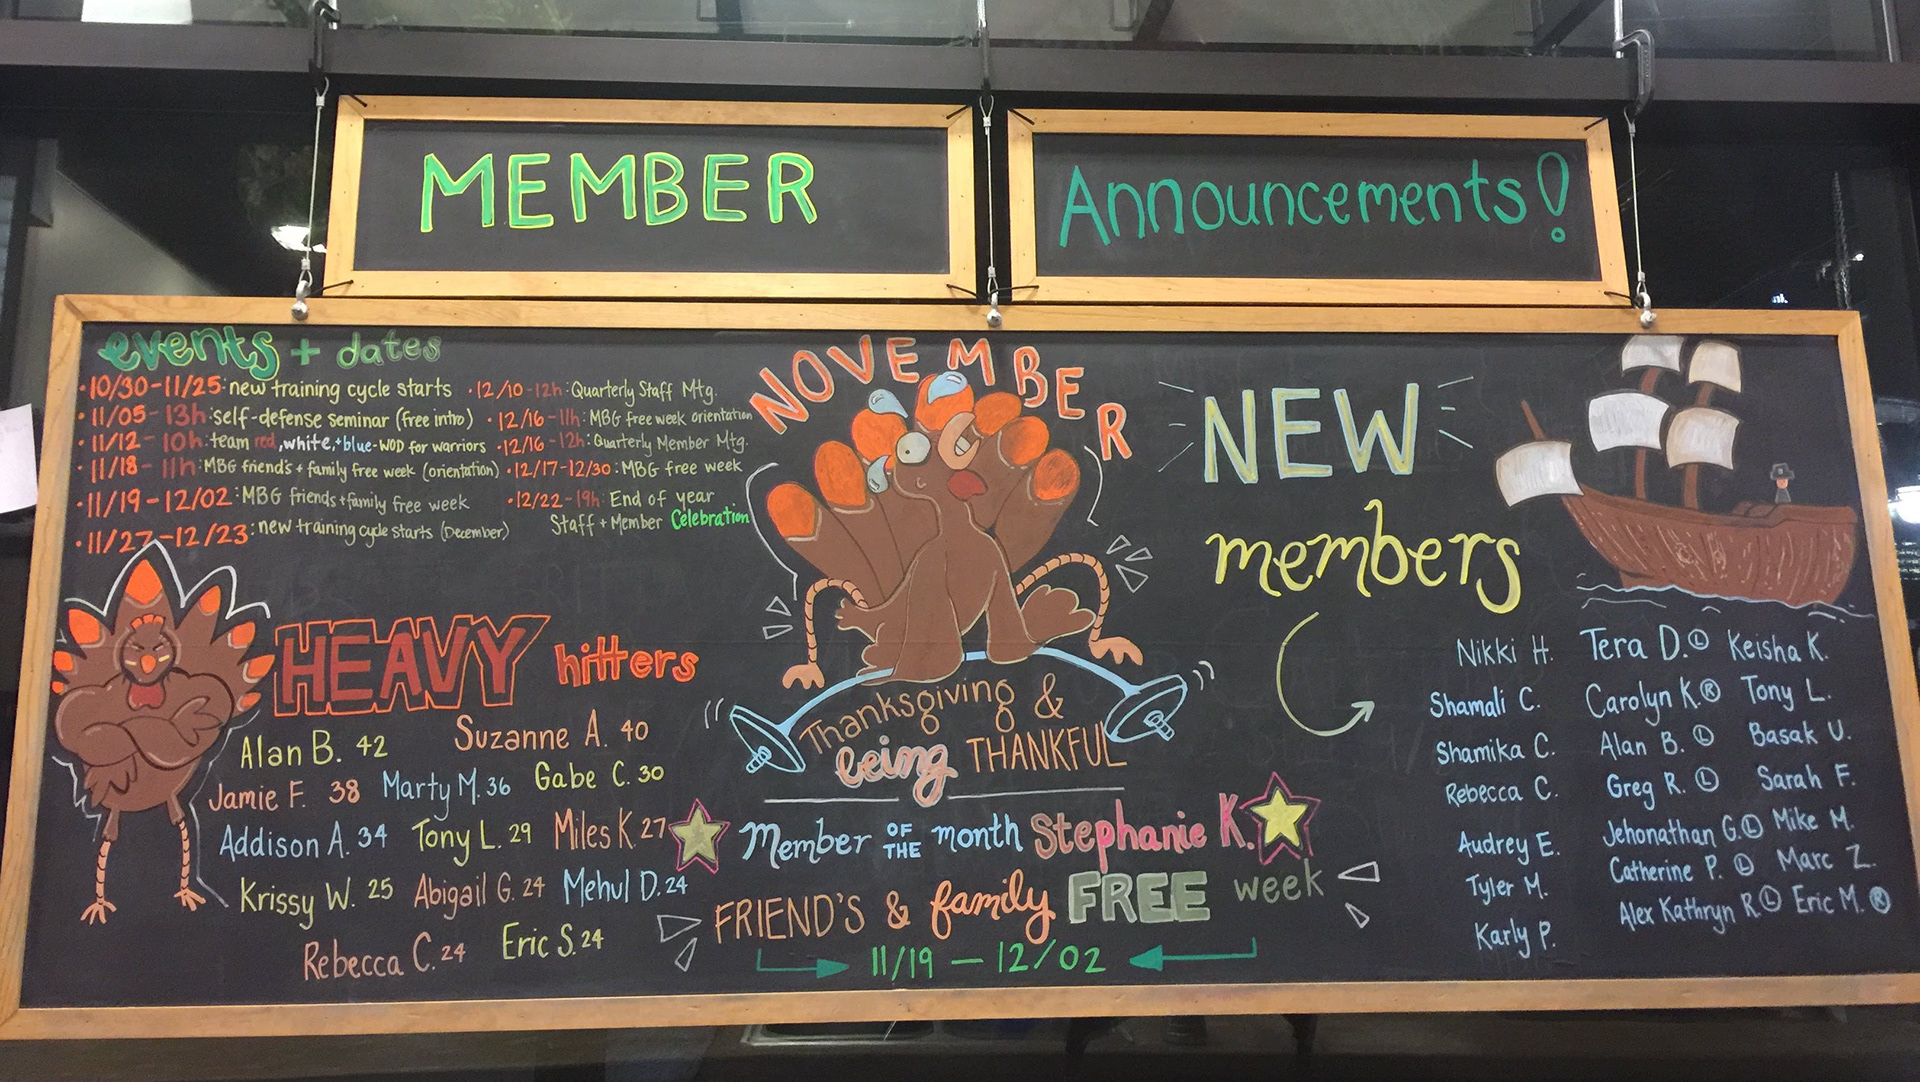 MEMBER
Announcements!
events + dates
• 10/30-11/25: new training cycle starts
• 11/05-13h: self-defense seminar (free intro)
• 11/12-10h: team red, white, + blue-WOD for warriors
• 11/18-11h: MBG friends + family free week (orientation)
• 11/19-12/02: MBG friends + family free week
• 11/27-12/23: new training cycle starts (December)
• 12/10-12h: Quarterly Staff Mtg.
• 12/16-11h: MBG free week orientation
• 12/16-12h: Quarterly Member Mtg.
• 12/17-12/30: MBG free week
• 12/22-19h: End of year
Staff + Member Celebration
HEAVY hitters
Alan B. 42 Suzanne A. 40
Jamie F. 38 Marty M. 36 Gabe C. 30
Addison A. 34 Tony L. 29 Miles K. 27
Krissy W. 25 Abigail G. 24 Mehul D. 24
Rebecca C. 24 Eric S. 24
NOVEMBER
Thanksgiving &
being THANKFUL
Member OF THE month Stephanie K.
FRIEND'S & family FREE week
11/19 - 12/02
NEW
members
Nikki H. Tera D. Ⓛ Keisha K.
Shamali C. Carolyn K. Ⓡ Tony L.
Shamika C. Alan B. Ⓛ Basak U.
Rebecca C. Greg R. Ⓛ Sarah F.
Audrey E. Jehonathan G. Ⓛ Mike M.
Tyler M. Catherine P. Ⓛ Marc Z.
Karly P. Alex Kathryn R. Ⓛ Eric M. Ⓡ